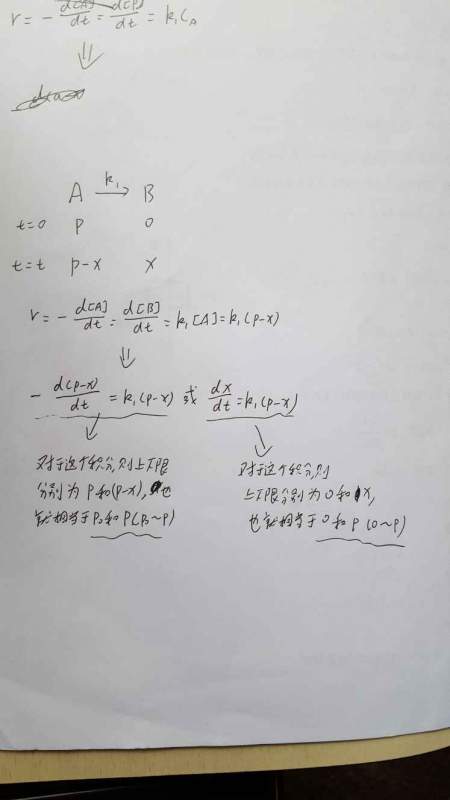 r = - d[A]/dt = d[P]/dt = k₁C_A
⇓
A —k₁→ B
t=0 P 0
t=t P-x x
r = - d[A]/dt = d[B]/dt = k₁[A] = k₁(P-x)
⇓
- d(P-x)/dt = k₁(P-x) 或 dx/dt = k₁(P-x)
对于这个积分,则上下限
分别为P和(P-x),也
就相当于P₀和P(P₀~P)
对于这个积分则
上下限分别为0和x,
也就相当于0和P(0~P)